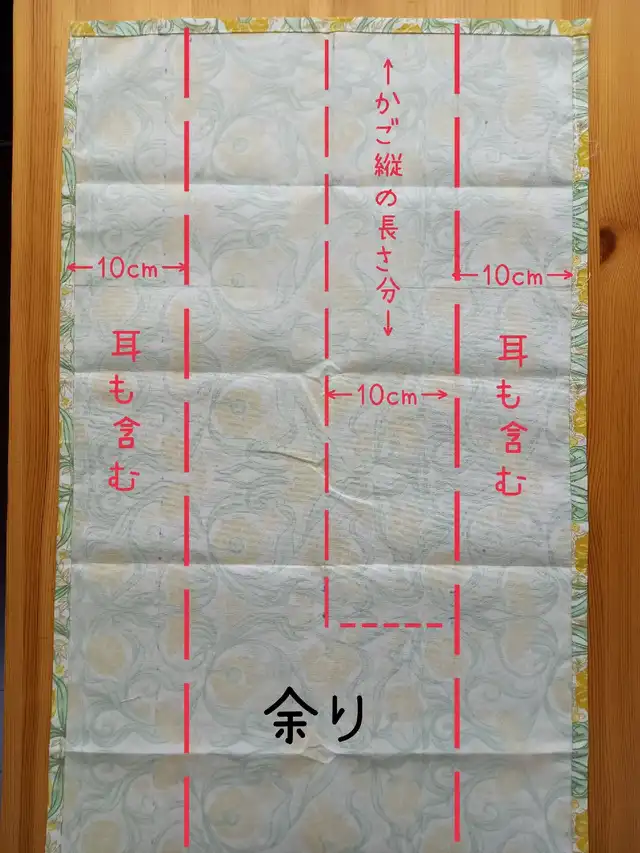 ←かご縦の長さ分→
←10cm→
←10cm→
耳も含む
耳も含む
←10cm→
余り